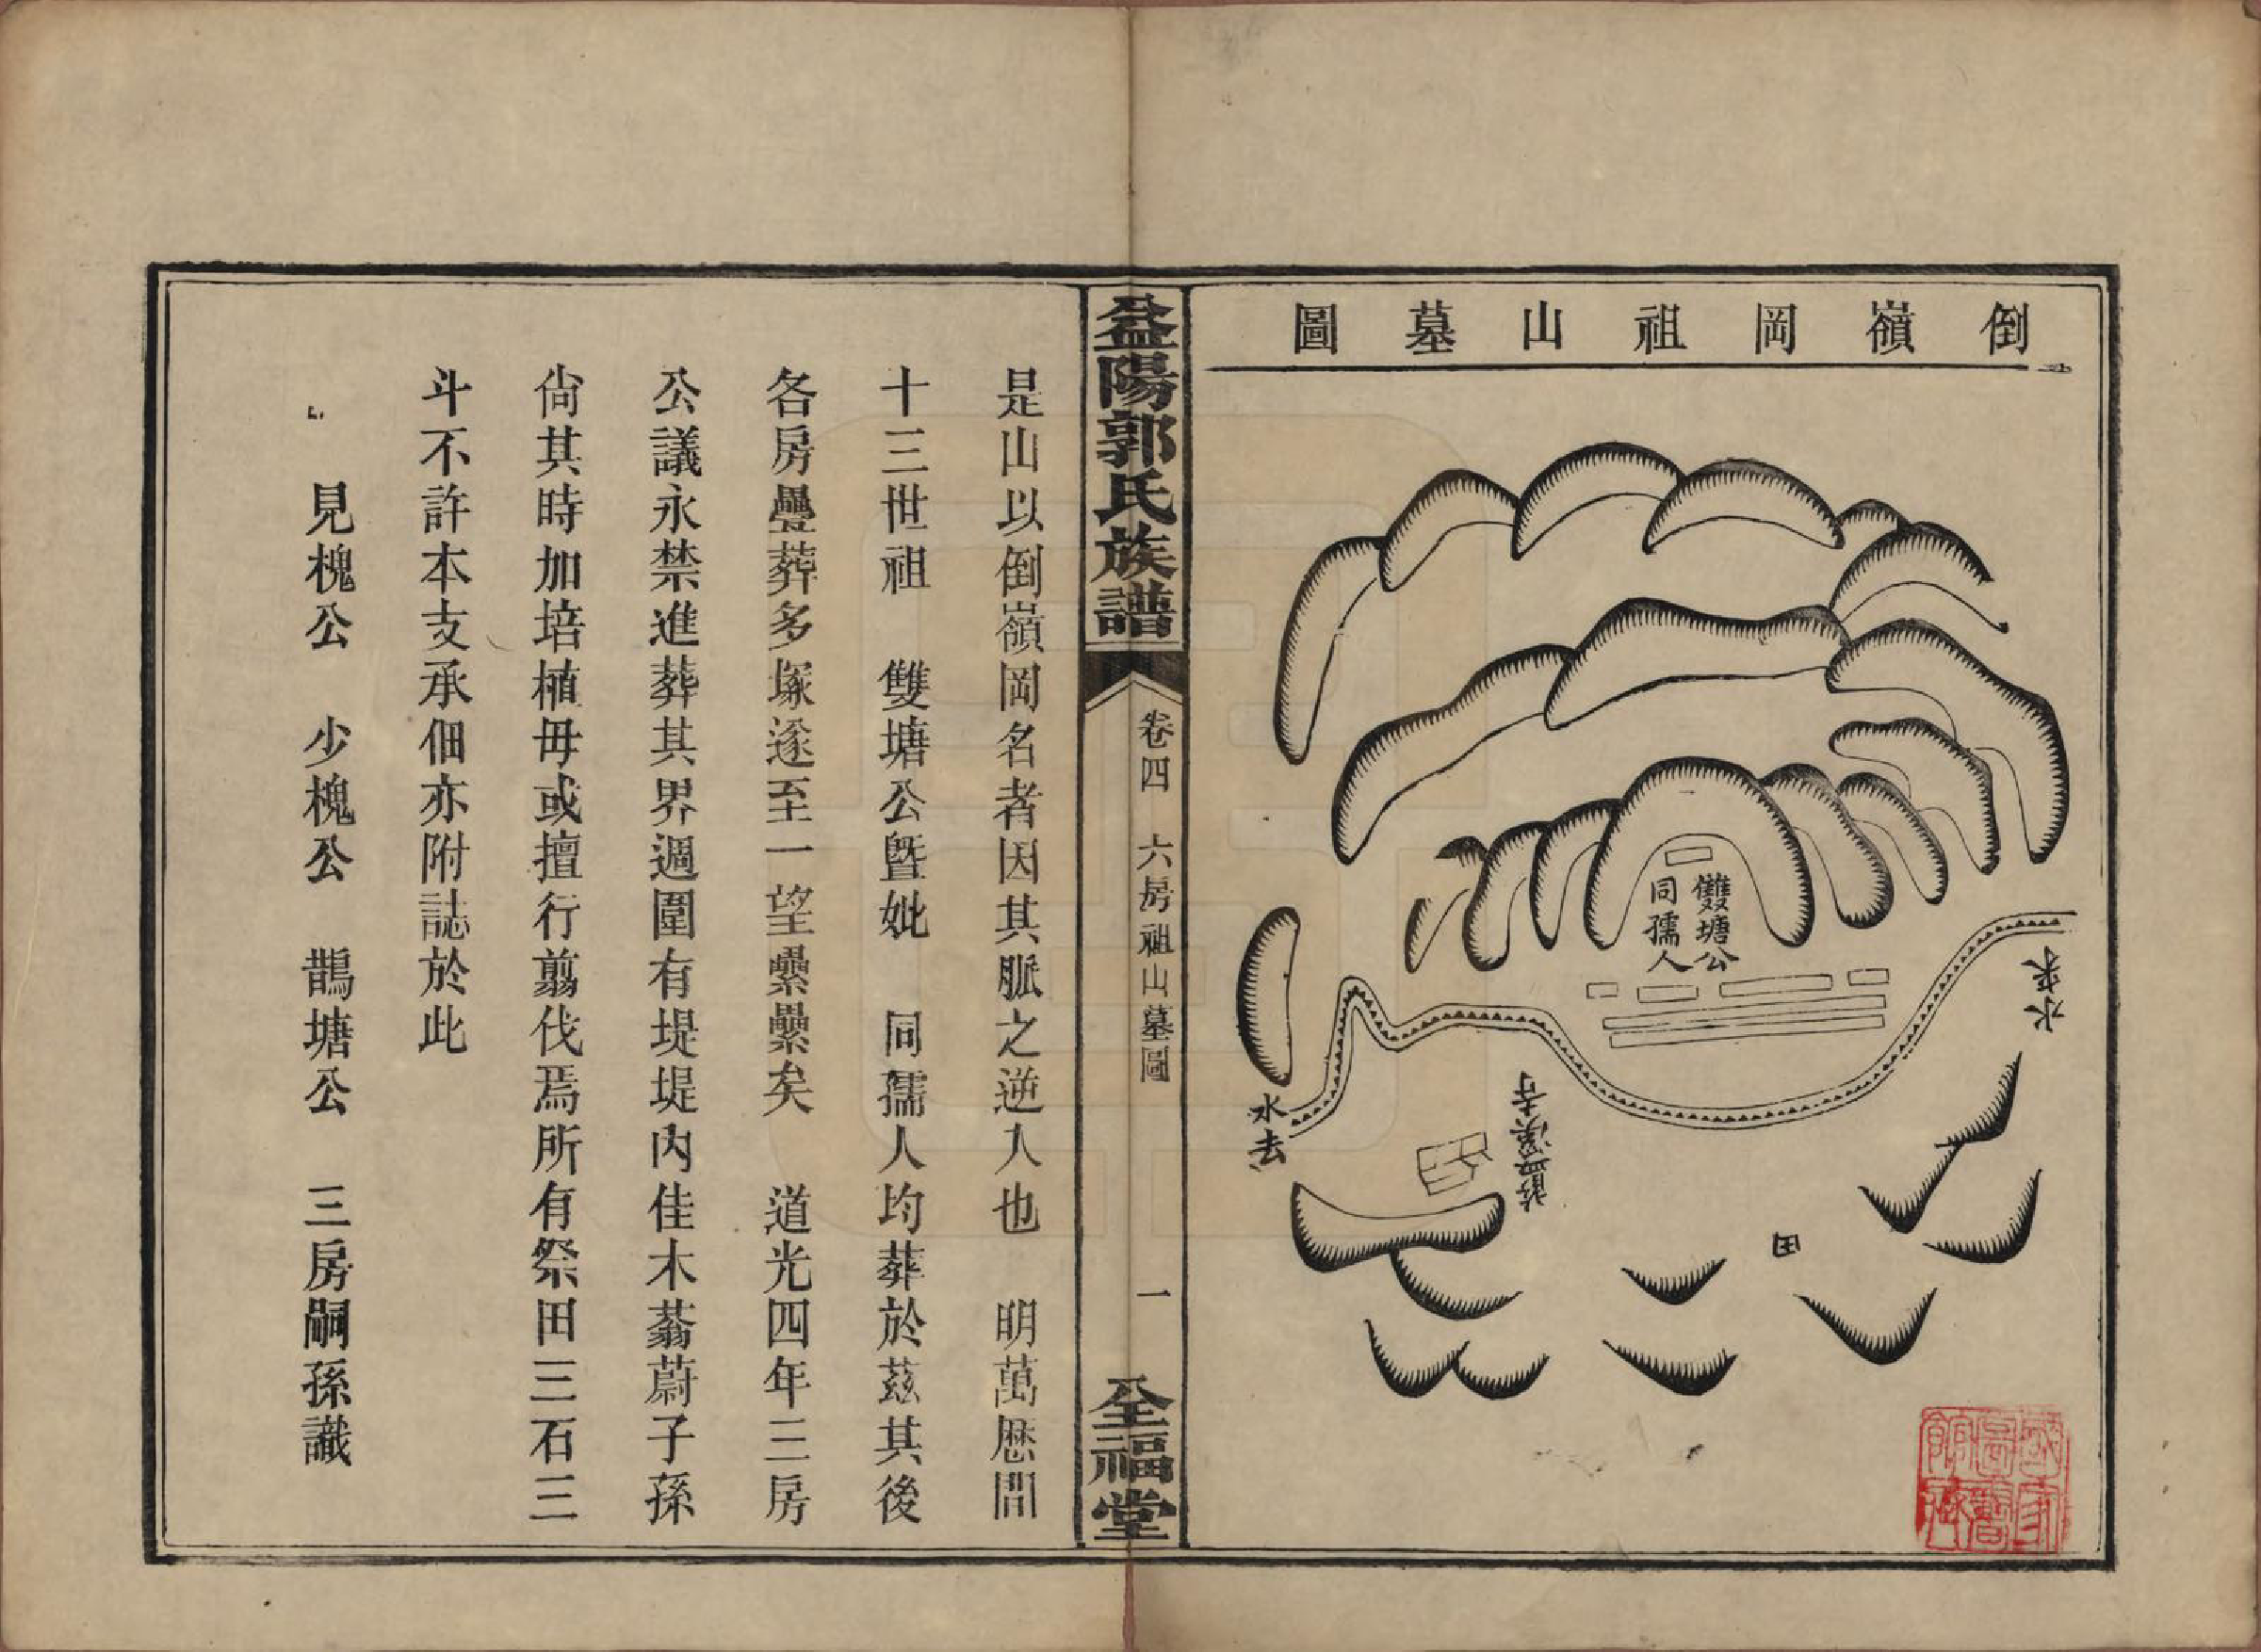 倒嶺岡祖山墓圖
雙塘公
同孺人
水來
水去
溪寺
田
國家圖書館藏
益陽郭氏族譜
卷四　六房祖山墓圖
一
全福堂
是山以倒嶺岡名者因其脈之逆入也　明萬歷間
十三世祖　雙塘公曁妣　同孺人均葬於茲其後
各房疊葬多塚遂至一望纍纍矣　道光四年三房
公議永禁進葬其界週圍有堤堤內佳木蓊蔚子孫
尙其時加培植毋或擅行翦伐焉所有祭田三石三
斗不許本支承佃亦附誌於此
見槐公　少槐公　鵲塘公　三房嗣孫識